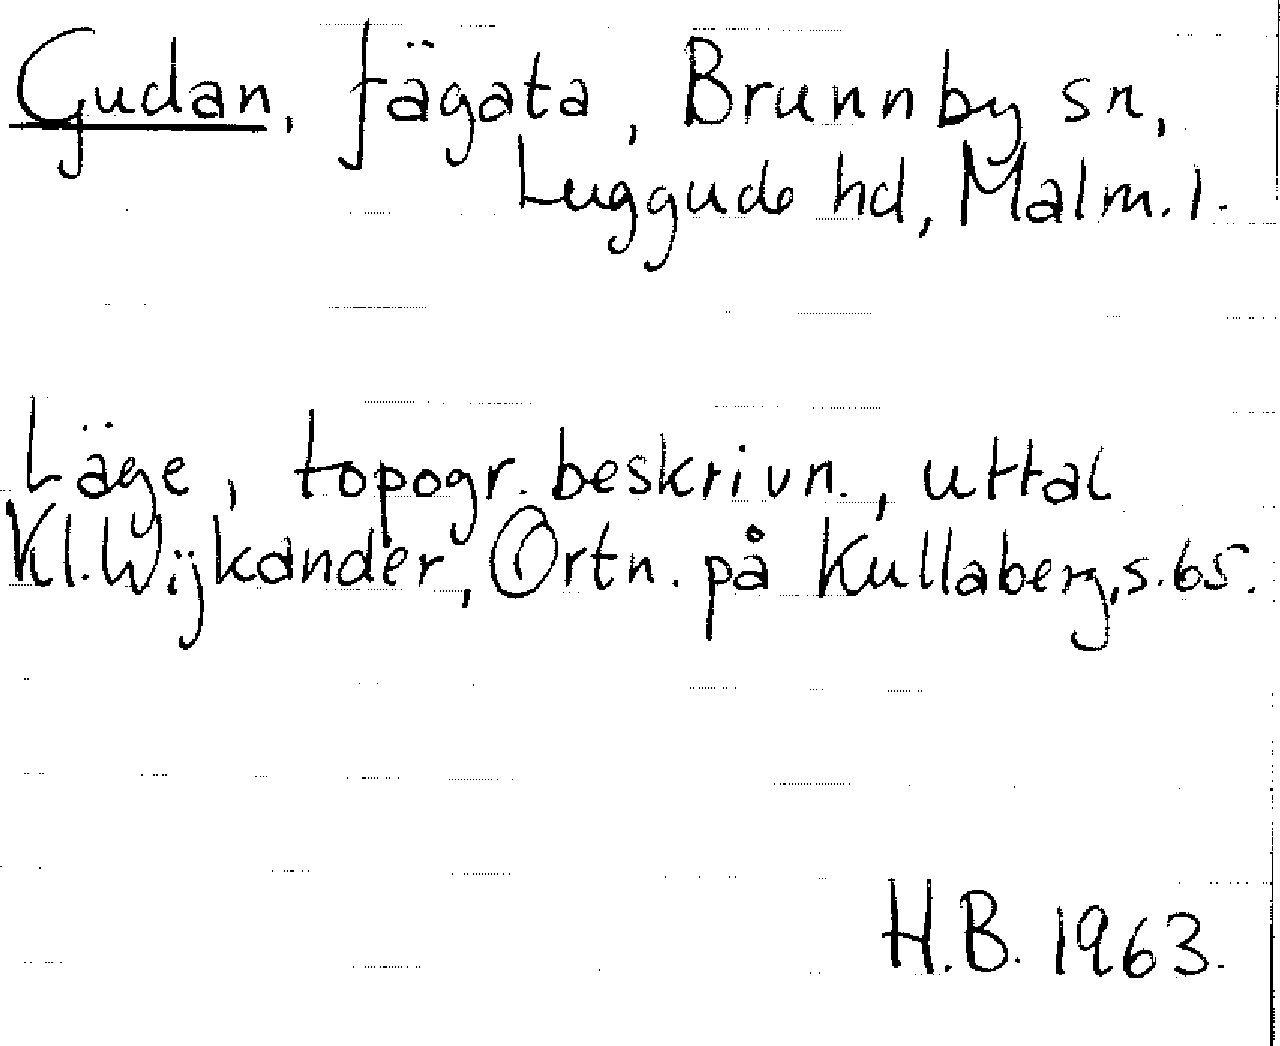 Gudan, fägata, Brunnby sn,
Luggude hd, Malm. l.
Läge, topogr. beskrivn., uttal
Kl. Wijkander, Ortn. på Kullaberg, s. 65.
H.B. 1963.